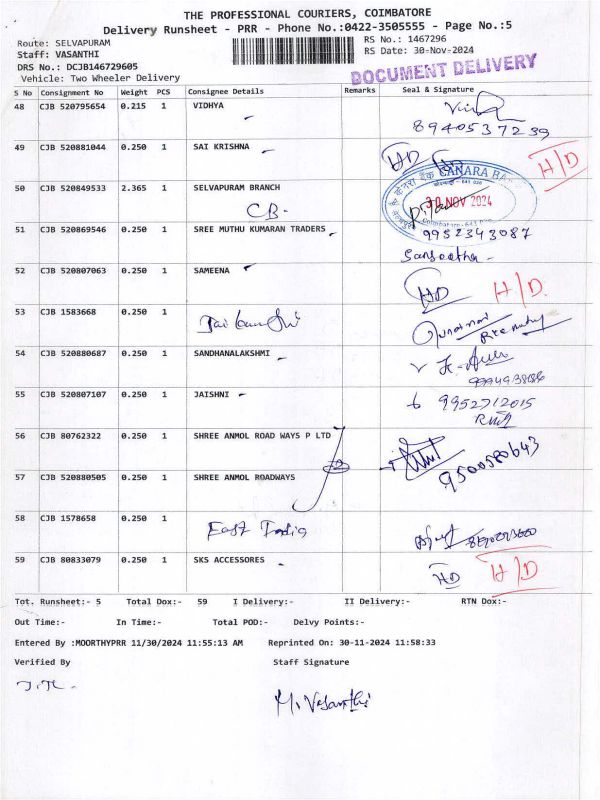 THE PROFESSIONAL COURIERS, COIMBATORE
Delivery Runsheet - PRR - Phone No.:0422-3505555 - Page No.:5
Route: SELVAPURAM
RS No.: 1467296
Staff: VASANTHI
RS Date: 30-Nov-2024
DRS No.: DCJB146729605
DOCUMENT DELIVERY
Vehicle: Two Wheeler Delivery
S No Consignment No Weight PCS Consignee Details Remarks Seal & Signature
48 CJB 520795654 0.215 1 VIDHYA
8940537239
49 CJB 520881044 0.250 1 SAI KRISHNA HD H/D
CANARA BANK
50 CJB 520849533 2.365 1 SELVAPURAM BRANCH
CB- 30 NOV 2024
51 CJB 520869546 0.250 1 SREE MUTHU KUMARAN TRADERS 9952343087
Sangeetha
52 CJB 520807063 0.250 1 SAMEENA HD H/D
53 CJB 1583668 0.250 1
54 CJB 520880687 0.250 1 SANDHANALAKSHMI
55 CJB 520807107 0.250 1 JAISHNI 9952712015
56 CJB 80762322 0.250 1 SHREE ANMOL ROAD WAYS P LTD
9500580643
57 CJB 520880505 0.250 1 SHREE ANMOL ROADWAYS
58 CJB 1578658 0.250 1 East India
59 CJB 80833079 0.250 1 SKS ACCESSORES HD H/D
Tot. Runsheet:- 5 Total Dox:- 59 I Delivery:- II Delivery:- RTN Dox:-
Out Time:- In Time:- Total POD:- Delvy Points:-
Entered By :MOORTHYPRR 11/30/2024 11:55:13 AM Reprinted On: 30-11-2024 11:58:33
Verified By Staff Signature
M. Vasanthi